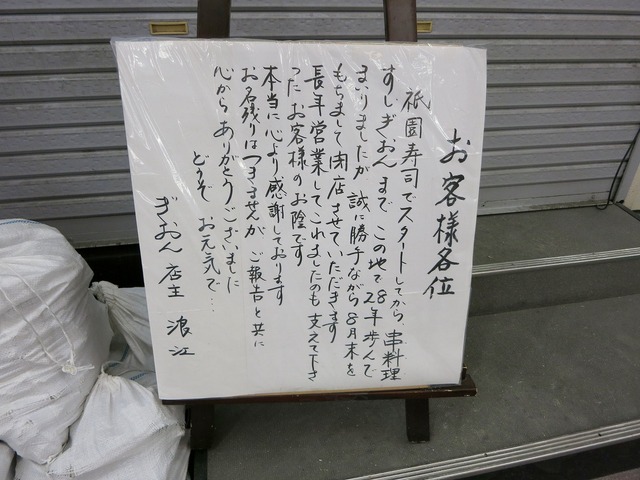 お客様各位
祇園寿司でスタートしてから、串料理
すしぎおんまでこの地で82年歩んで
まいりましたが誠に勝手ながら8月末を
もちまして閉店させていただきます
長年営業してこれましたのも支えて下さ
ったお客様のお陰です
本当に心より感謝しております
お名残りはつきませんが、ご報告と共に
心からありがとうございました
どうぞお元気で…
ぎおん店主 浪江